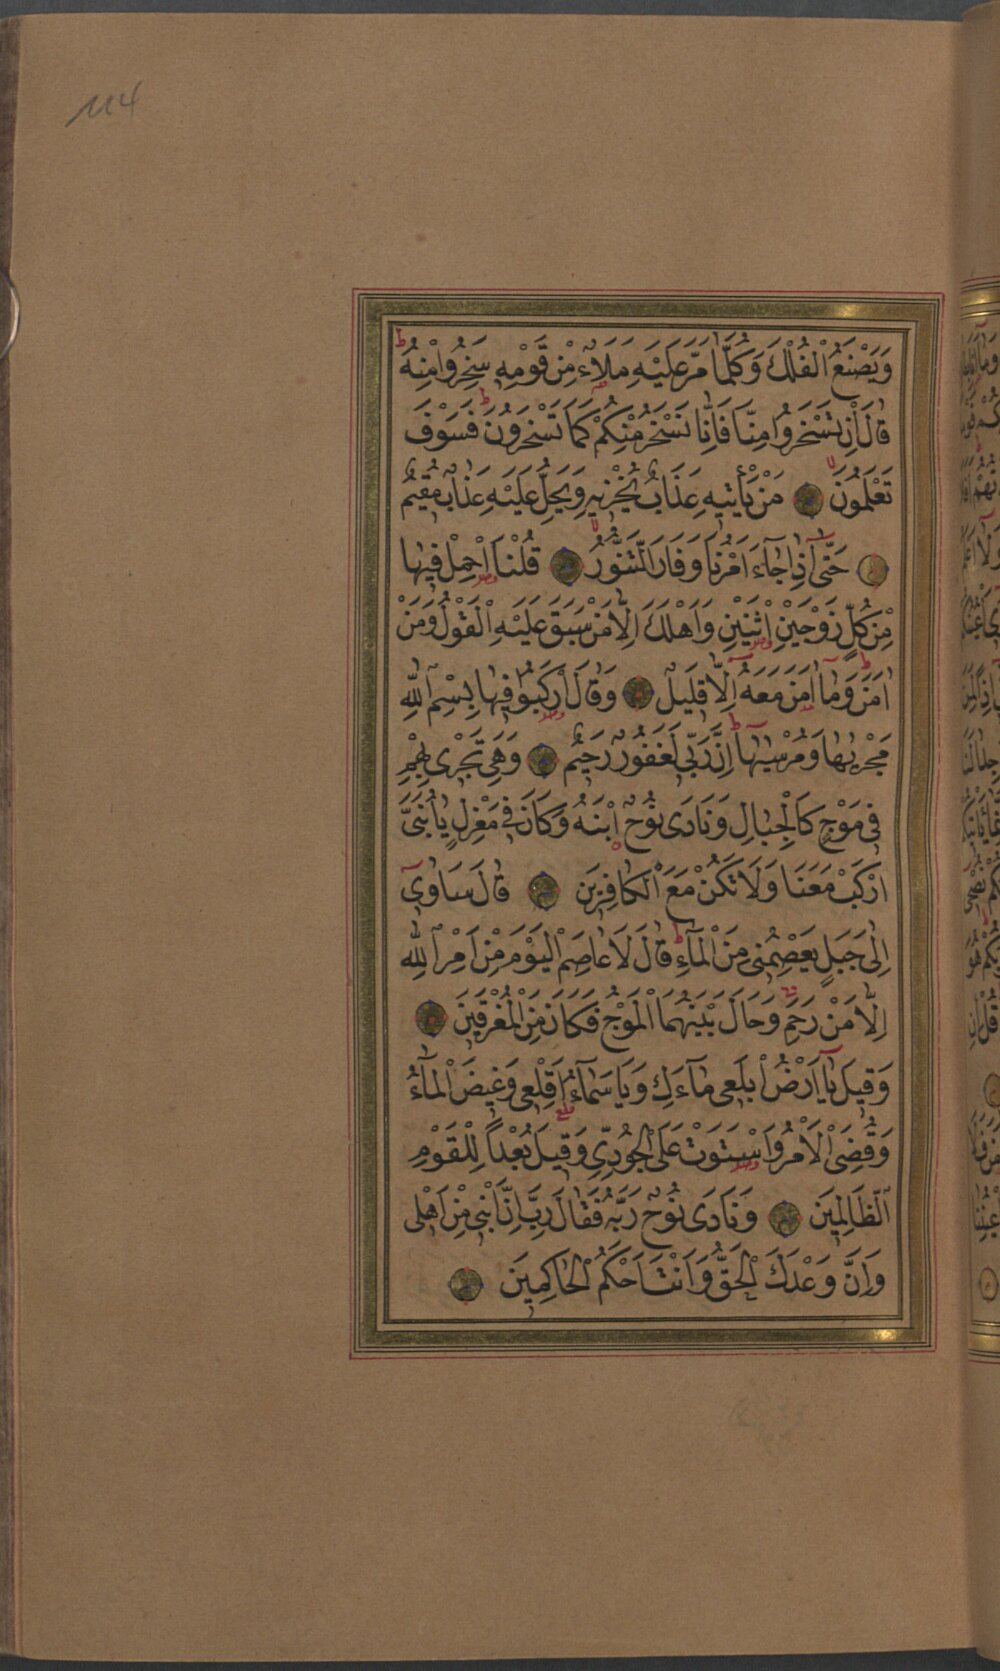 114
وَيَصْنَعُ الْفُلْكَ وَكُلَّمَا مَرَّ عَلَيْهِ مَلَاٌ مِنْ قَوْمِهِ سَخِرُوا مِنْهُ
قَالَ اِنْ تَسْخَرُوا مِنَّا فَاِنَّا نَسْخَرُ مِنْكُمْ كَمَا تَسْخَرُونَ فَسَوْفَ
تَعْلَمُونَ مَنْ يَأْتِيهِ عَذَابٌ يُخْزِيهِ وَيَحِلُّ عَلَيْهِ عَذَابٌ مُقِيمٌ
حَتّٰى اِذَا جَاۤءَ اَمْرُنَا وَفَارَ التَّنُّورُ قُلْنَا احْمِلْ فِيهَا
مِنْ كُلٍّ زَوْجَيْنِ اثْنَيْنِ وَاَهْلَكَ اِلَّا مَنْ سَبَقَ عَلَيْهِ الْقَوْلُ وَمَنْ
اٰمَنَ وَمَاۤ اٰمَنَ مَعَهُ اِلَّا قَلِيلٌ وَقَالَ ارْكَبُوا فِيهَا بِسْمِ اللّٰهِ
مَجْرٰيهَا وَمُرْسٰيهَا اِنَّ رَبِّى لَغَفُورٌ رَحِيمٌ وَهِىَ تَجْرِى بِهِمْ
فِى مَوْجٍ كَالْجِبَالِ وَنَادٰى نُوحٌ ابْنَهُ وَكَانَ فِى مَعْزِلٍ يَا بُنَىَّ
ارْكَبْ مَعَنَا وَلَا تَكُنْ مَعَ الْكَافِرِينَ قَالَ سَاٰوِى
اِلٰى جَبَلٍ يَعْصِمُنِى مِنَ الْمَاۤءِ قَالَ لَا عَاصِمَ الْيَوْمَ مِنْ اَمْرِ اللّٰهِ
اِلَّا مَنْ رَحِمَ وَحَالَ بَيْنَهُمَا الْمَوْجُ فَكَانَ مِنَ الْمُغْرَقِينَ
وَقِيلَ يَاۤ اَرْضُ ابْلَعِى مَاۤءَكِ وَيَا سَمَاۤءُ اَقْلِعِى وَغِيضَ الْمَاۤءُ
وَقُضِىَ الْاَمْرُ وَاسْتَوَتْ عَلَى الْجُودِىِّ وَقِيلَ بُعْدًا لِلْقَوْمِ
الظَّالِمِينَ وَنَادٰى نُوحٌ رَبَّهُ فَقَالَ رَبِّ اِنَّ ابْنِى مِنْ اَهْلِى
وَاِنَّ وَعْدَكَ الْحَقُّ وَاَنْتَ اَحْكَمُ الْحَاكِمِينَ